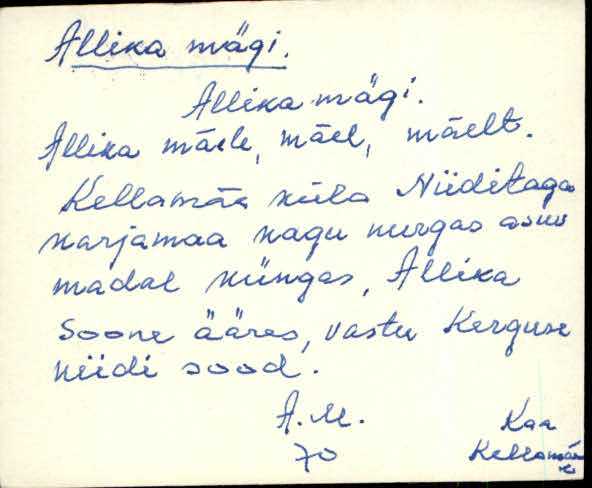 Allika mägi.
Allika mägi.
Allika mäele, mäel, mäelt.
Kellamäa küla Niiditaga
karjamaa kagu nurgas asuv
madal küngas, Allika
Soone ääres, vastu Kerguse
niidi sood.
A.M. Kaa
70 Kellamäe
k